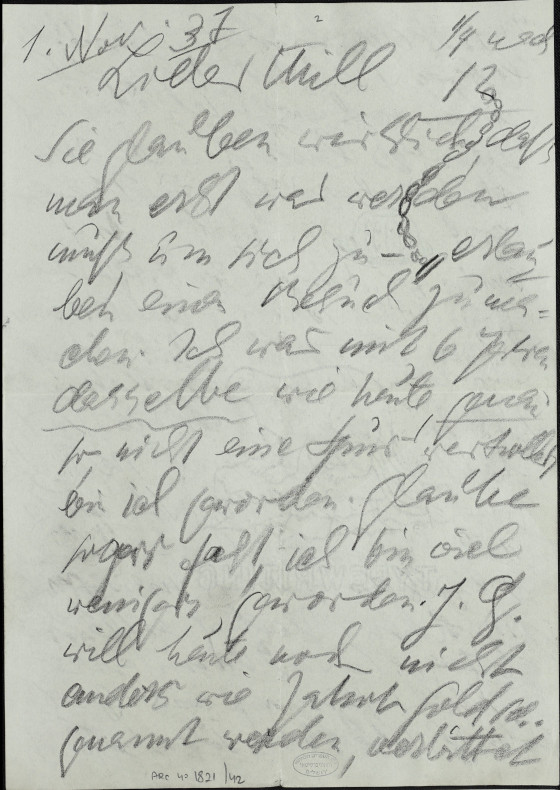 1. Nov. 37
2
1/4 nach
12
Lieber Mill
Sie glauben wirklich, daß
man erst was werden
muß um sich zu erlau-
ben einen Besuch zu ma=
chen. Ich war mit 6 Jahren
dasselbe wie heute genau
so nicht eine Spur wertvoller
bin ich geworden. Glaube
sogar fast ich bin viel
weniger geworden. J. G.
will heute noch nicht
anders wie Jakob Gold
genannt werden,
ARC 4o 1821/42